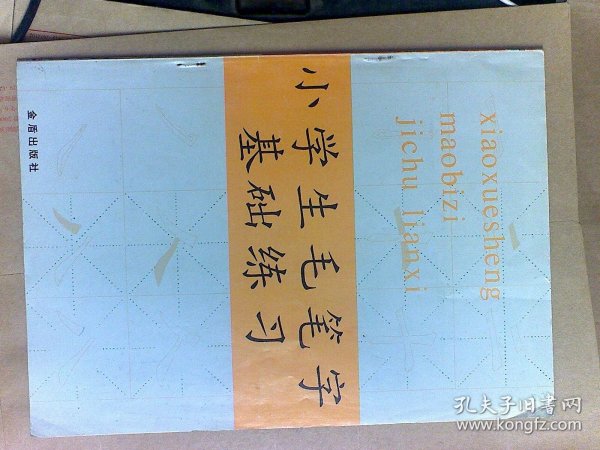 xiaoxuesheng
maobizi
jichu lianxi
小学生毛笔字
基础练习
金盾出版社
孔夫子旧书网
www.kongfz.com